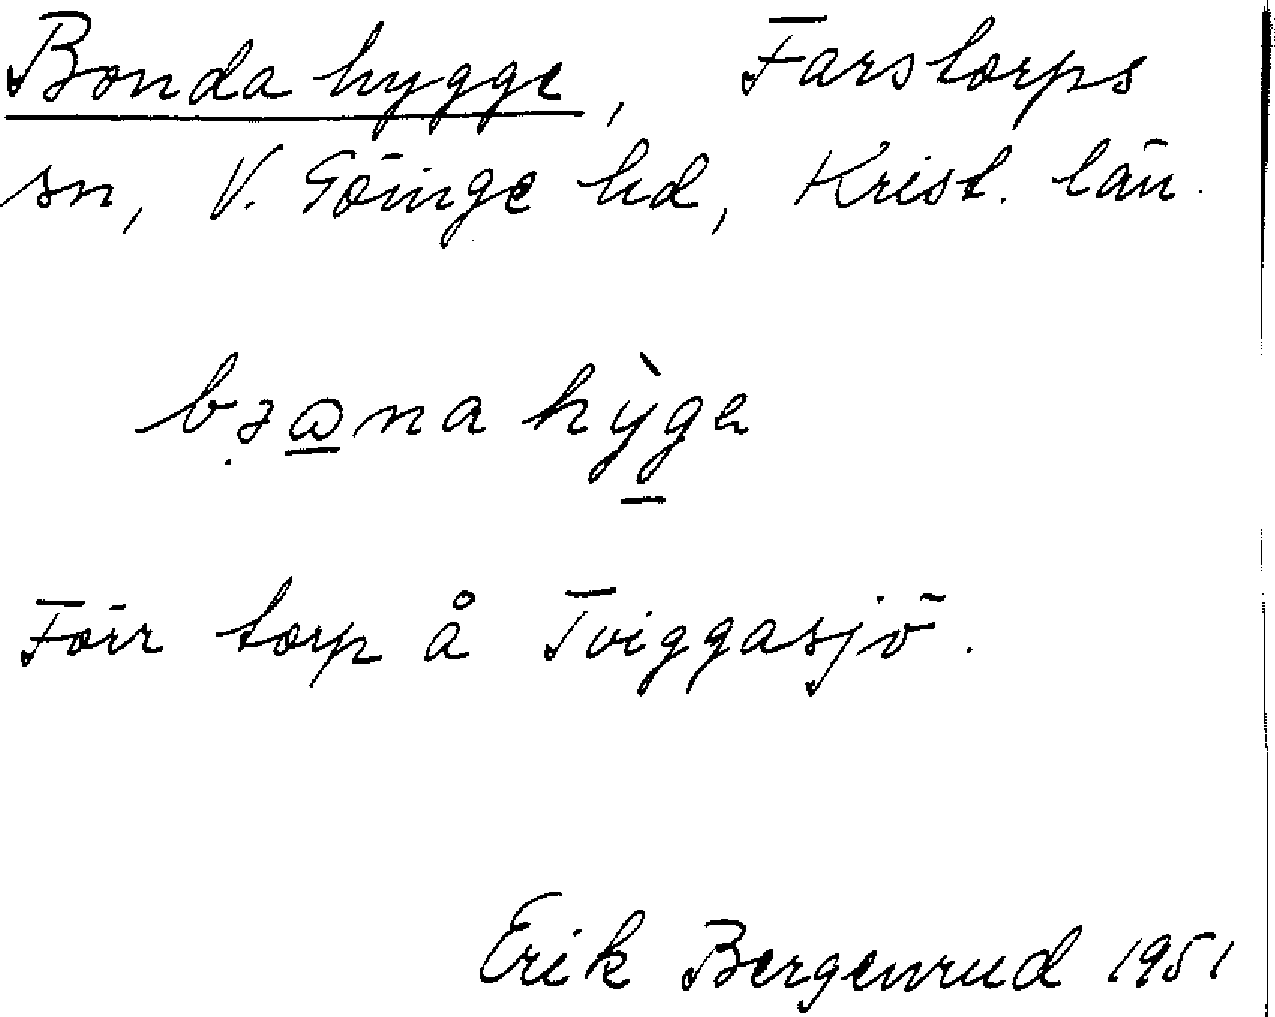 Bondahygge, Farstorps
sn, V. Göinge hd, Krist. län.
bɜωna hỳgə
Förr torp å Tviggasjö.
Erik Bergenrud 1951